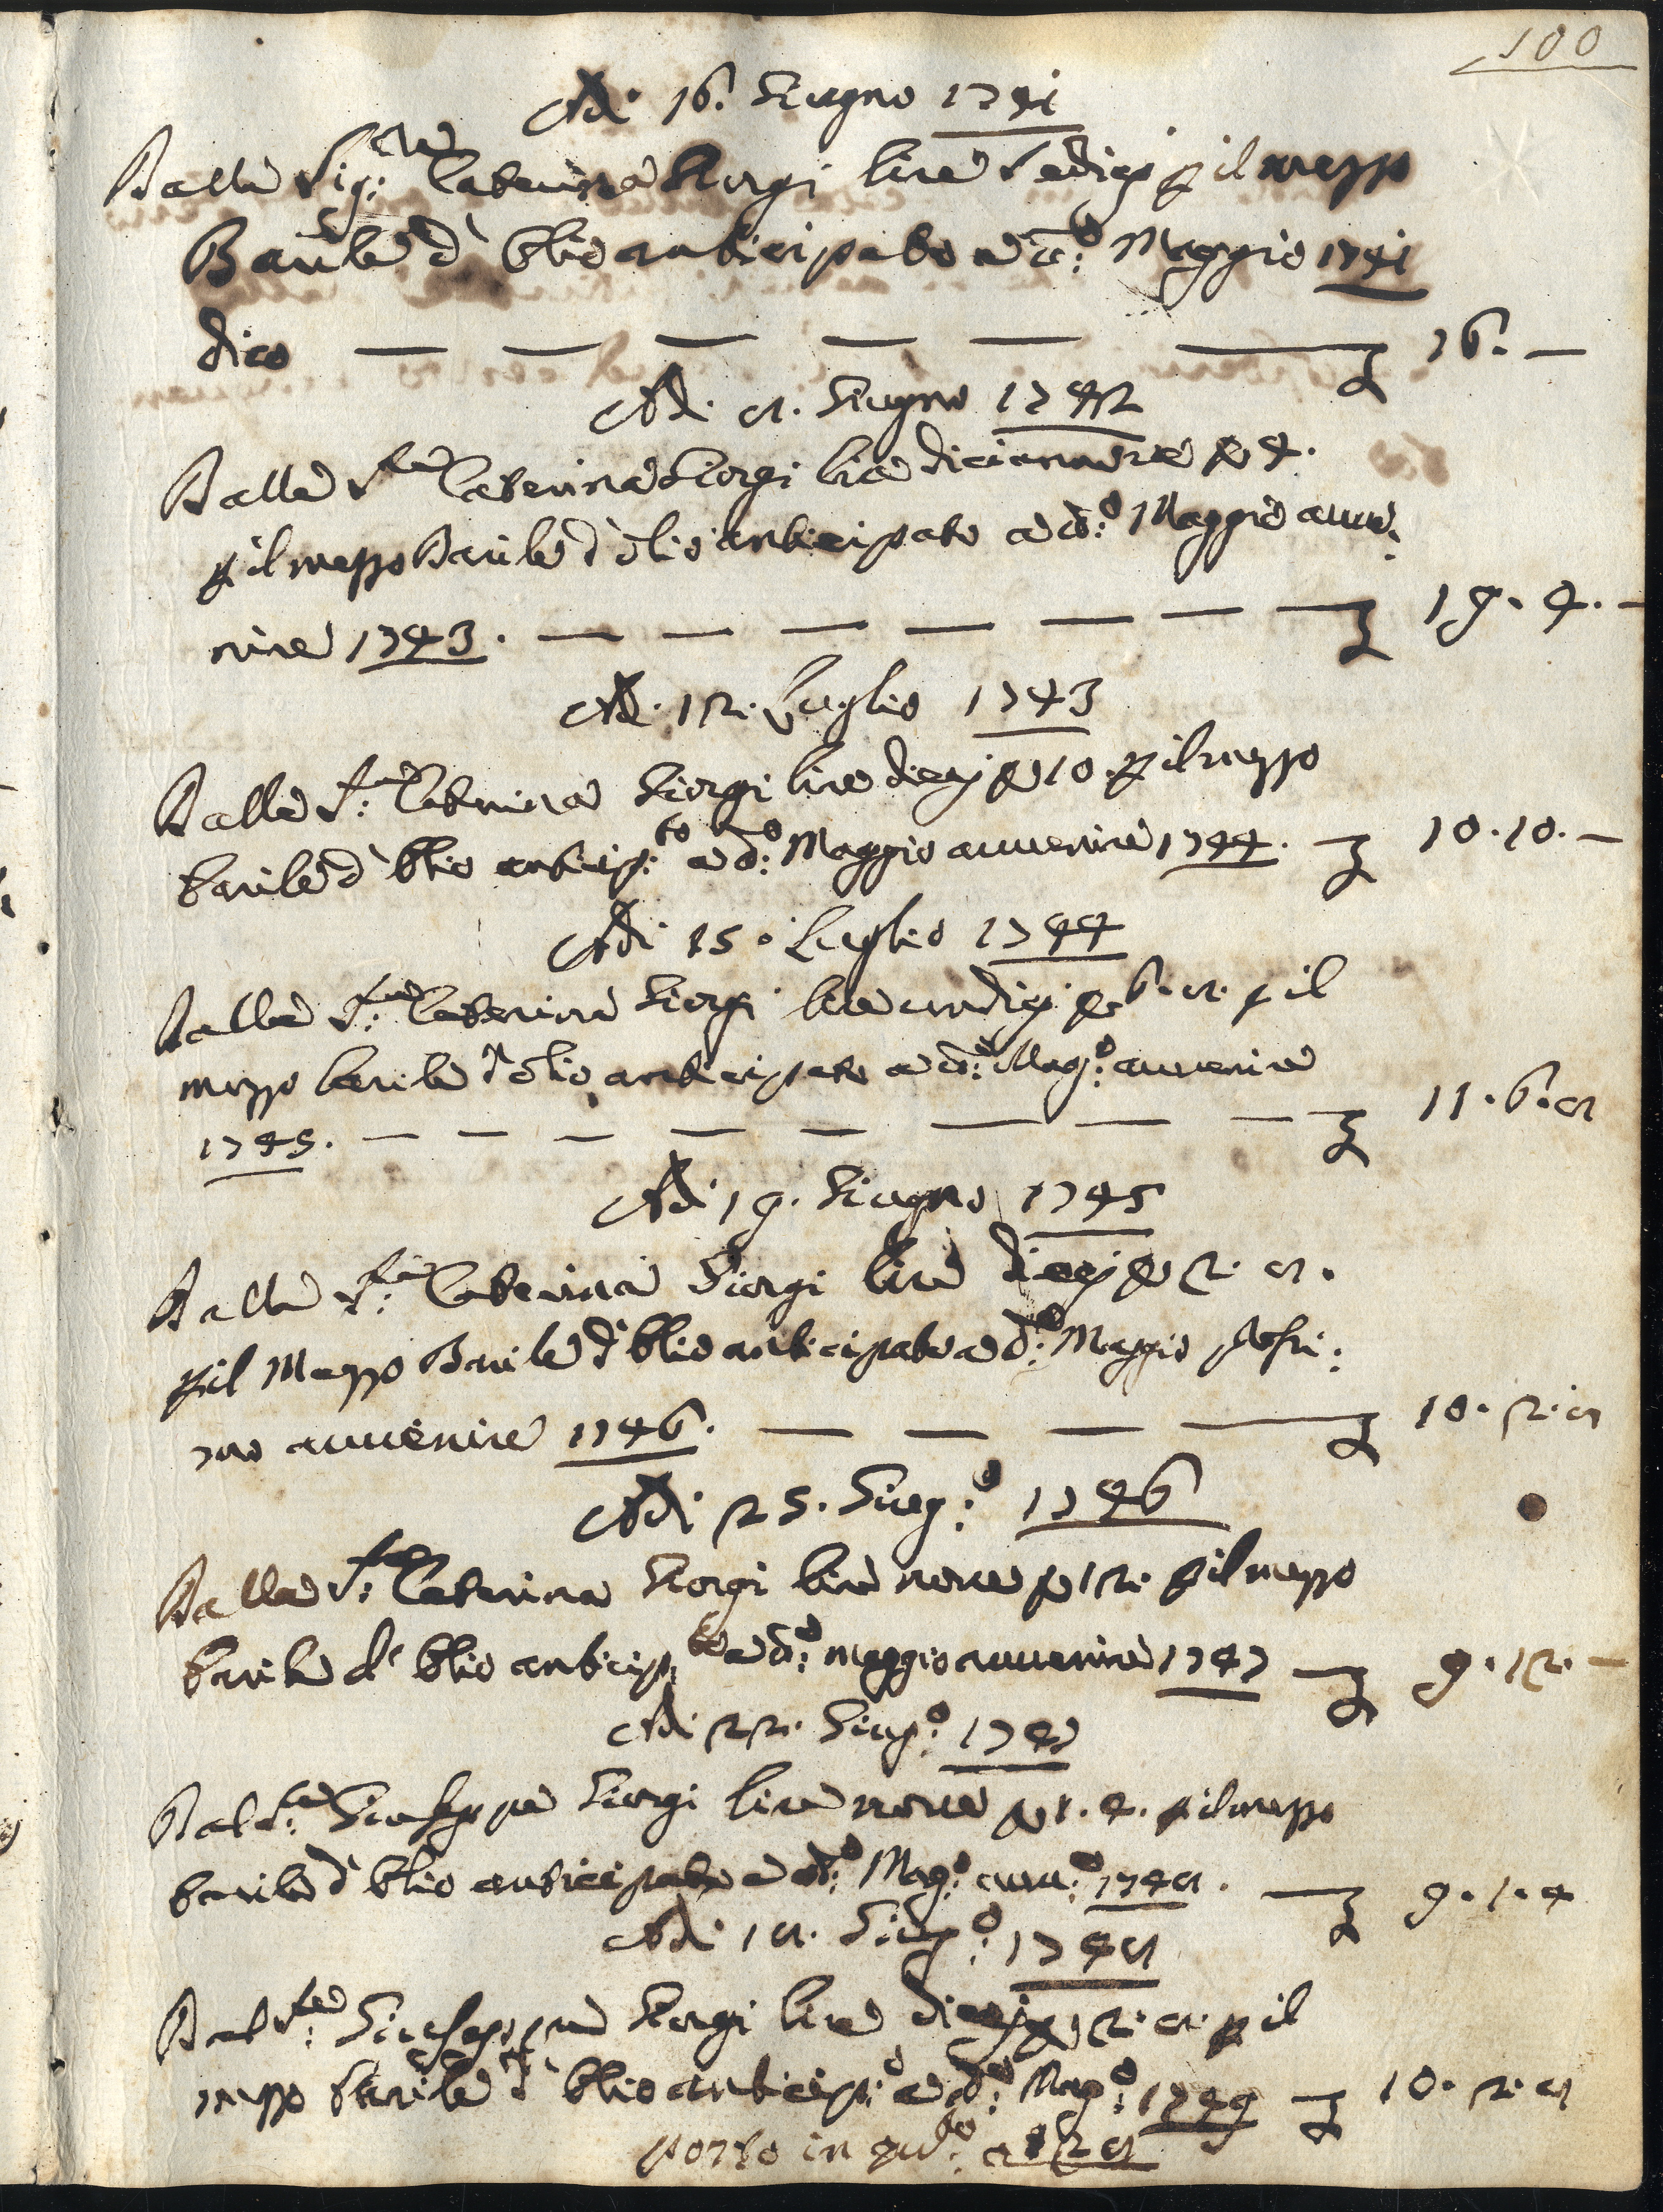 100
Adi 16. Giugno 1741
Dalla Sig:ra Caterina Giorgi lire sedici p il mezzo
Barile d' Olio anticipato a d:o Maggio 1741
dico — — — — — — £ 16. —
Adi 8. Giugno 1742
Dalla S:ra Caterina Giorgi lire diciannove e 4.
p il mezzo Barile d' olio anticipato a d:o Maggio avve:
nire 1743. — — — — — — — £ 19. 4. —
Adi 12. Luglio 1743
Dalla S:ra Caterina Giorgi lire dieci e 10. p il mezzo
barile d' Olio anticip:to a d:o Maggio avvenire 1744. £ 10. 10. —
Adi 15. Luglio 1744
Dalla S:ra Caterina Giorgi lire undici e 6. 8. p il
mezzo barile d' olio anticipato a d:o Mag:o avvenire
1745. — — — — — — — — £ 11. 6. 8
Adi 19. Giugno 1745
Dalla S:ra Caterina Giorgi lire dieci e 2. 8.
p il Mezzo Barile d' Olio anticipato a d:o Maggio prossi:
mo avvenire 1746. — — — — £ 10. 2. 8
Adi 25. Giug:o 1746
Dalla S:ra Caterina Giorgi lire nove e 12. p il mezzo
barile d' Olio anticip:to a d:o maggio avvenire 1747 — £ 9. 12. —
Adi 22. Giug:o 1747
Dal S:re Giuseppe Giorgi lire nove e 1. 4. p il mezzo
barile d' Olio anticipato a d:o Mag:o avv:e 1748. — £ 9. 1. 4
Adi 18. Giug:o 1748
Dal S:re Giuseppe Giorgi lire dieci e 2. 8. p il
mezzo barile d' Olio anticip:o a d:o Mag:o 1749 £ 10. 2. 8
porto in qu:o a 128